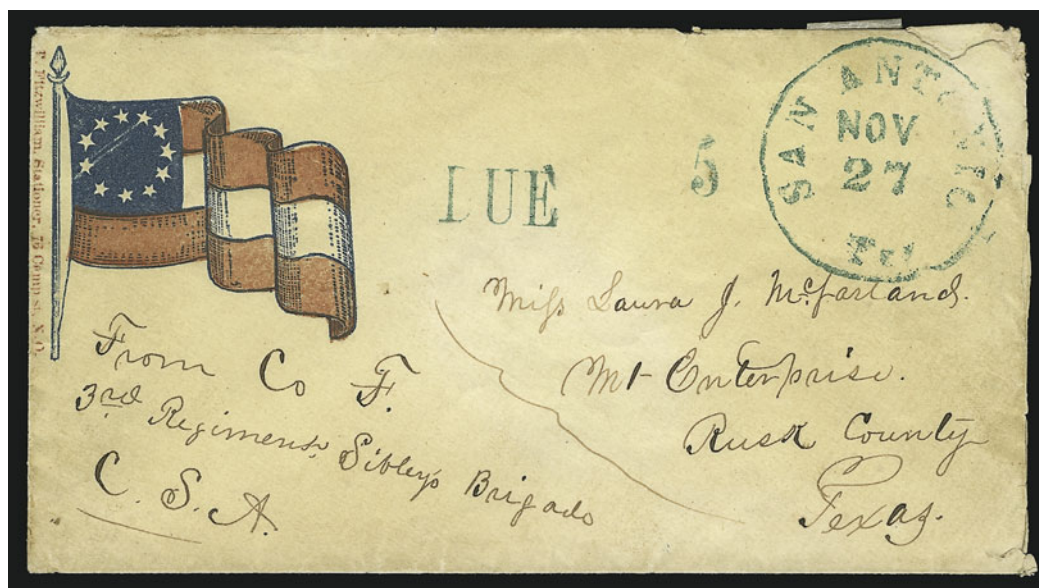 Fitzwilliam, Stationer, Camp st. N.O.
SAN ANTONIO
NOV
27
DUE 5
Miss Laura J. McFarland.
Mt Enterprise.
Rusk County
Texas.
From Co F.
3rd Regiment, Sibleys Brigade
C. S. A.